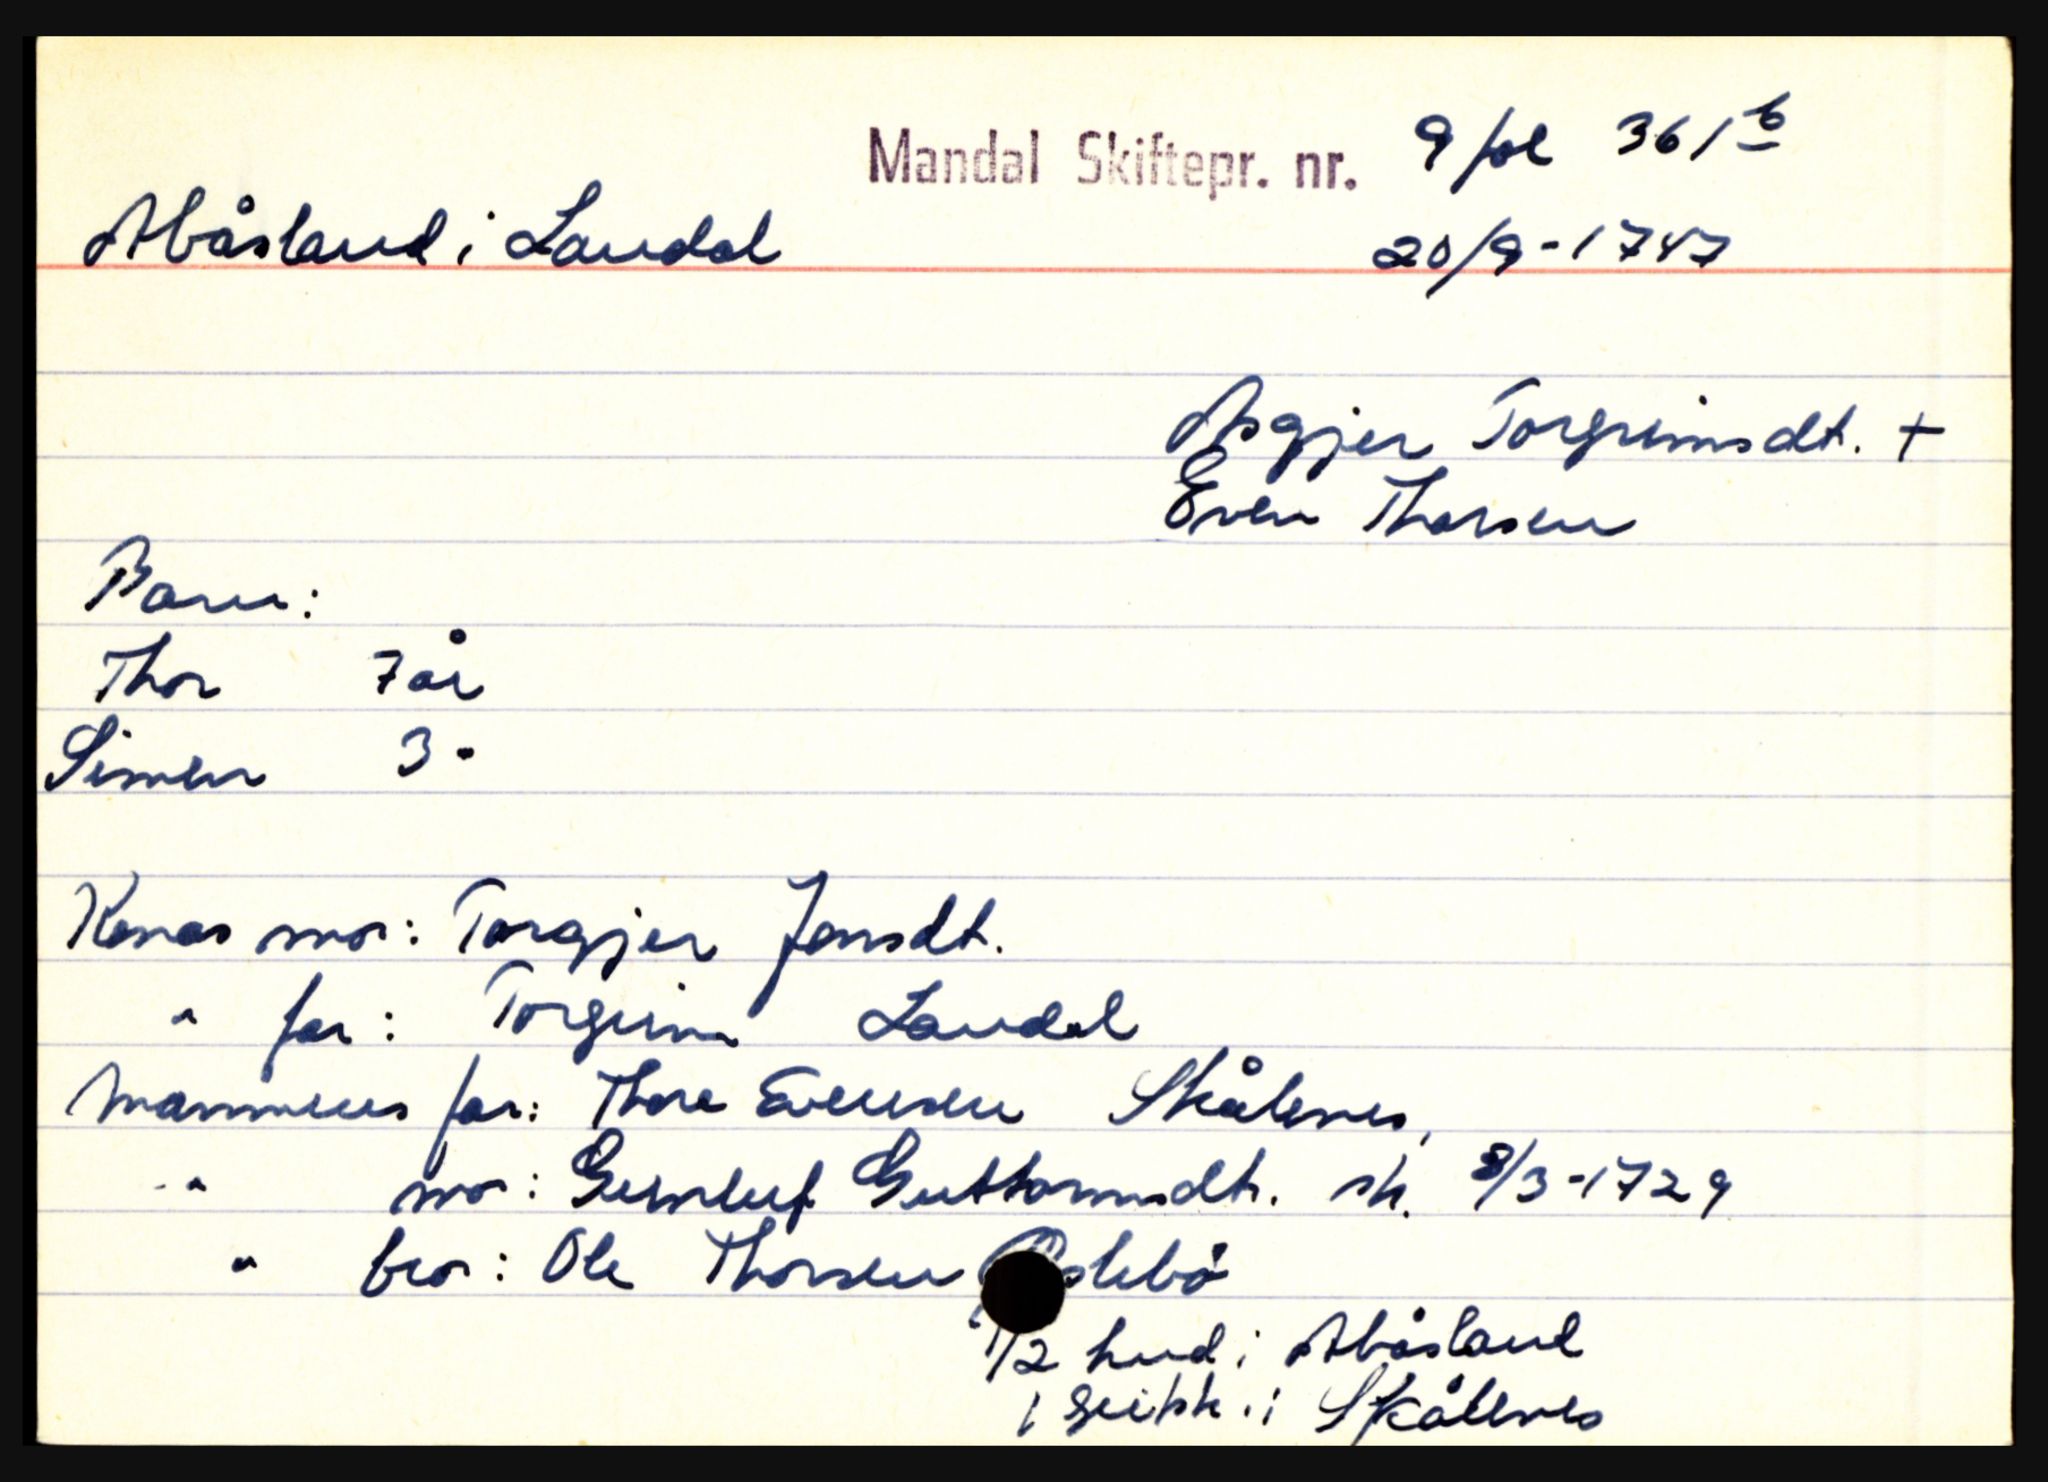 Mandal Skiftepr. nr. 9 fol 361 b
Abåsland i Laudal 20/9-1747
Asgjer Torgrimsdt. +
Even Thorsen
Barn:
Thor 7 år
Simen 3 "
Konas mor: Torgjer Jonsdt.
" far: Torgrim Laudal
Mannens far: Thore Evensen Skålenes,
" mor: Guttormsdt. sk. 8/3-1729
" bror: Ole Thorsen
1/2 hud i Abåsland
1 geitsk. i Skålenes